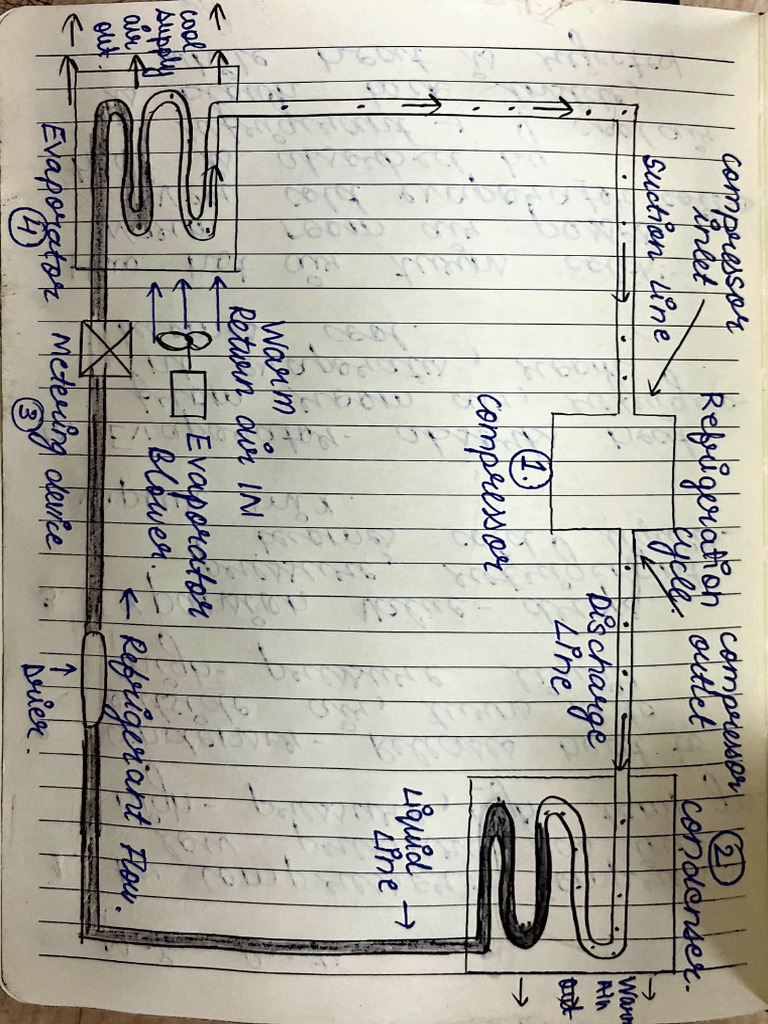 Compressor
inlet
Suction Line
Refrigeration
cycle
compressor
outlet
②
condenser.
Compressor
①.
Discharge
Line
Liquid
Line →
Warm
Air
out
cool
supply
air
out.
Warm
Return air IN
Evaporator
Blower.
Evaporator
④
Metering device
③
← Refrigerant Flow.
Drier.